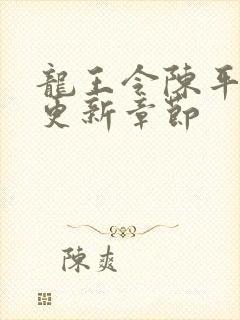 龍王令陳平
更新章節
陳爽